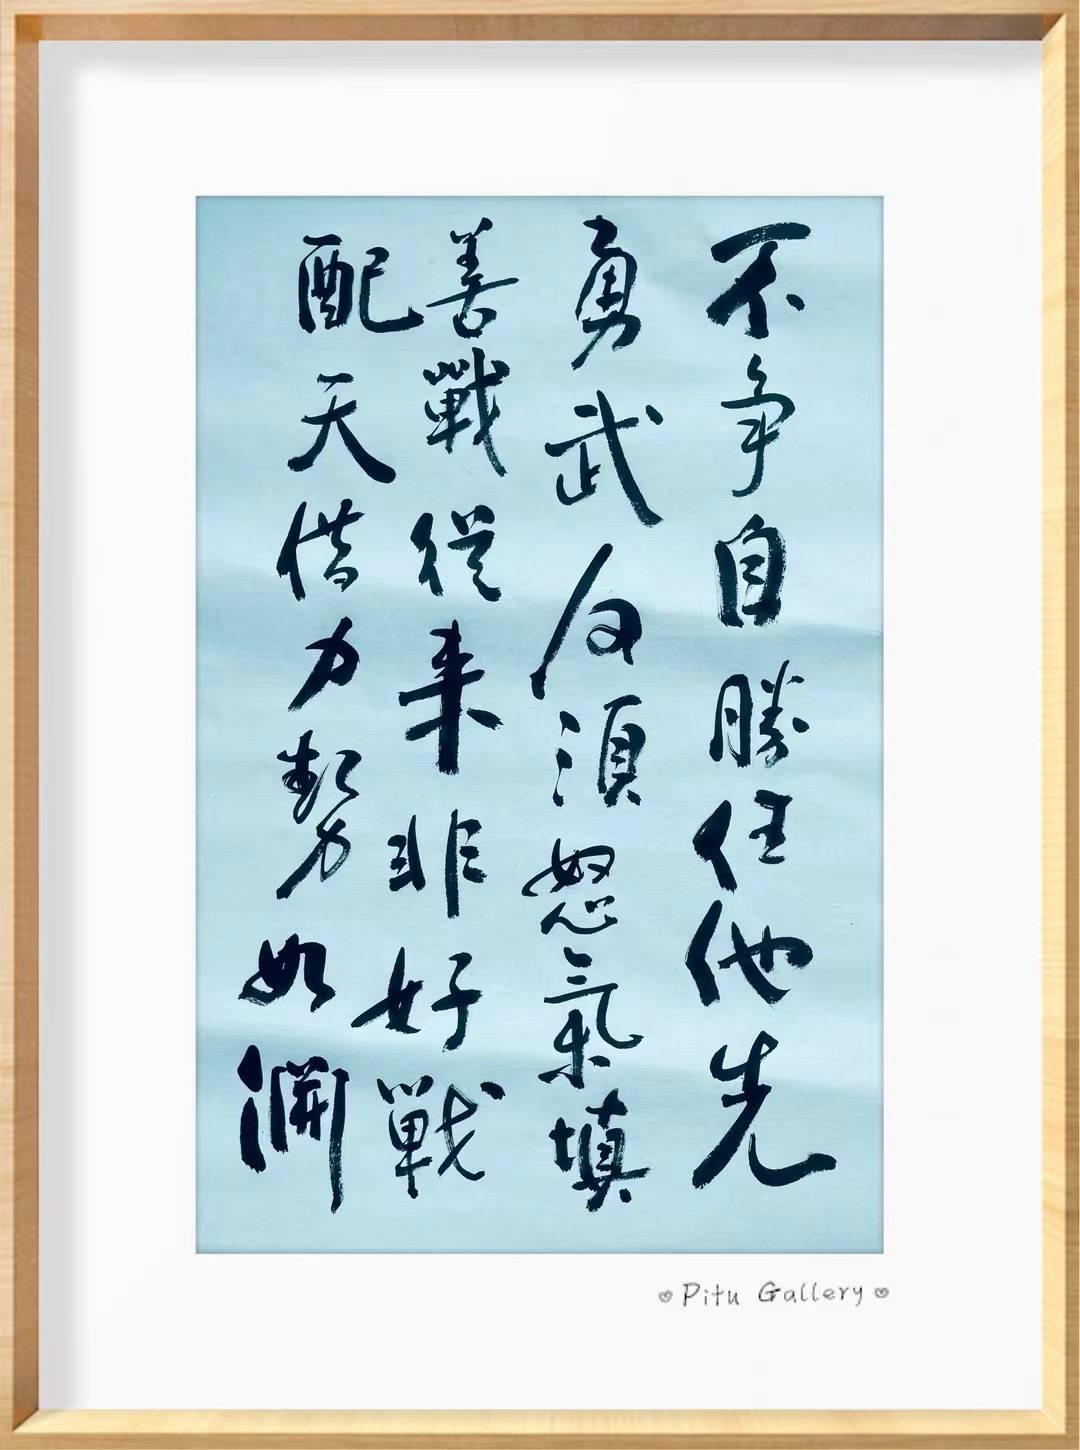 不争自勝任他先
勇武何須怒氣填
善戰從来非好戰
配天借力勢如淵
Pitu Gallery